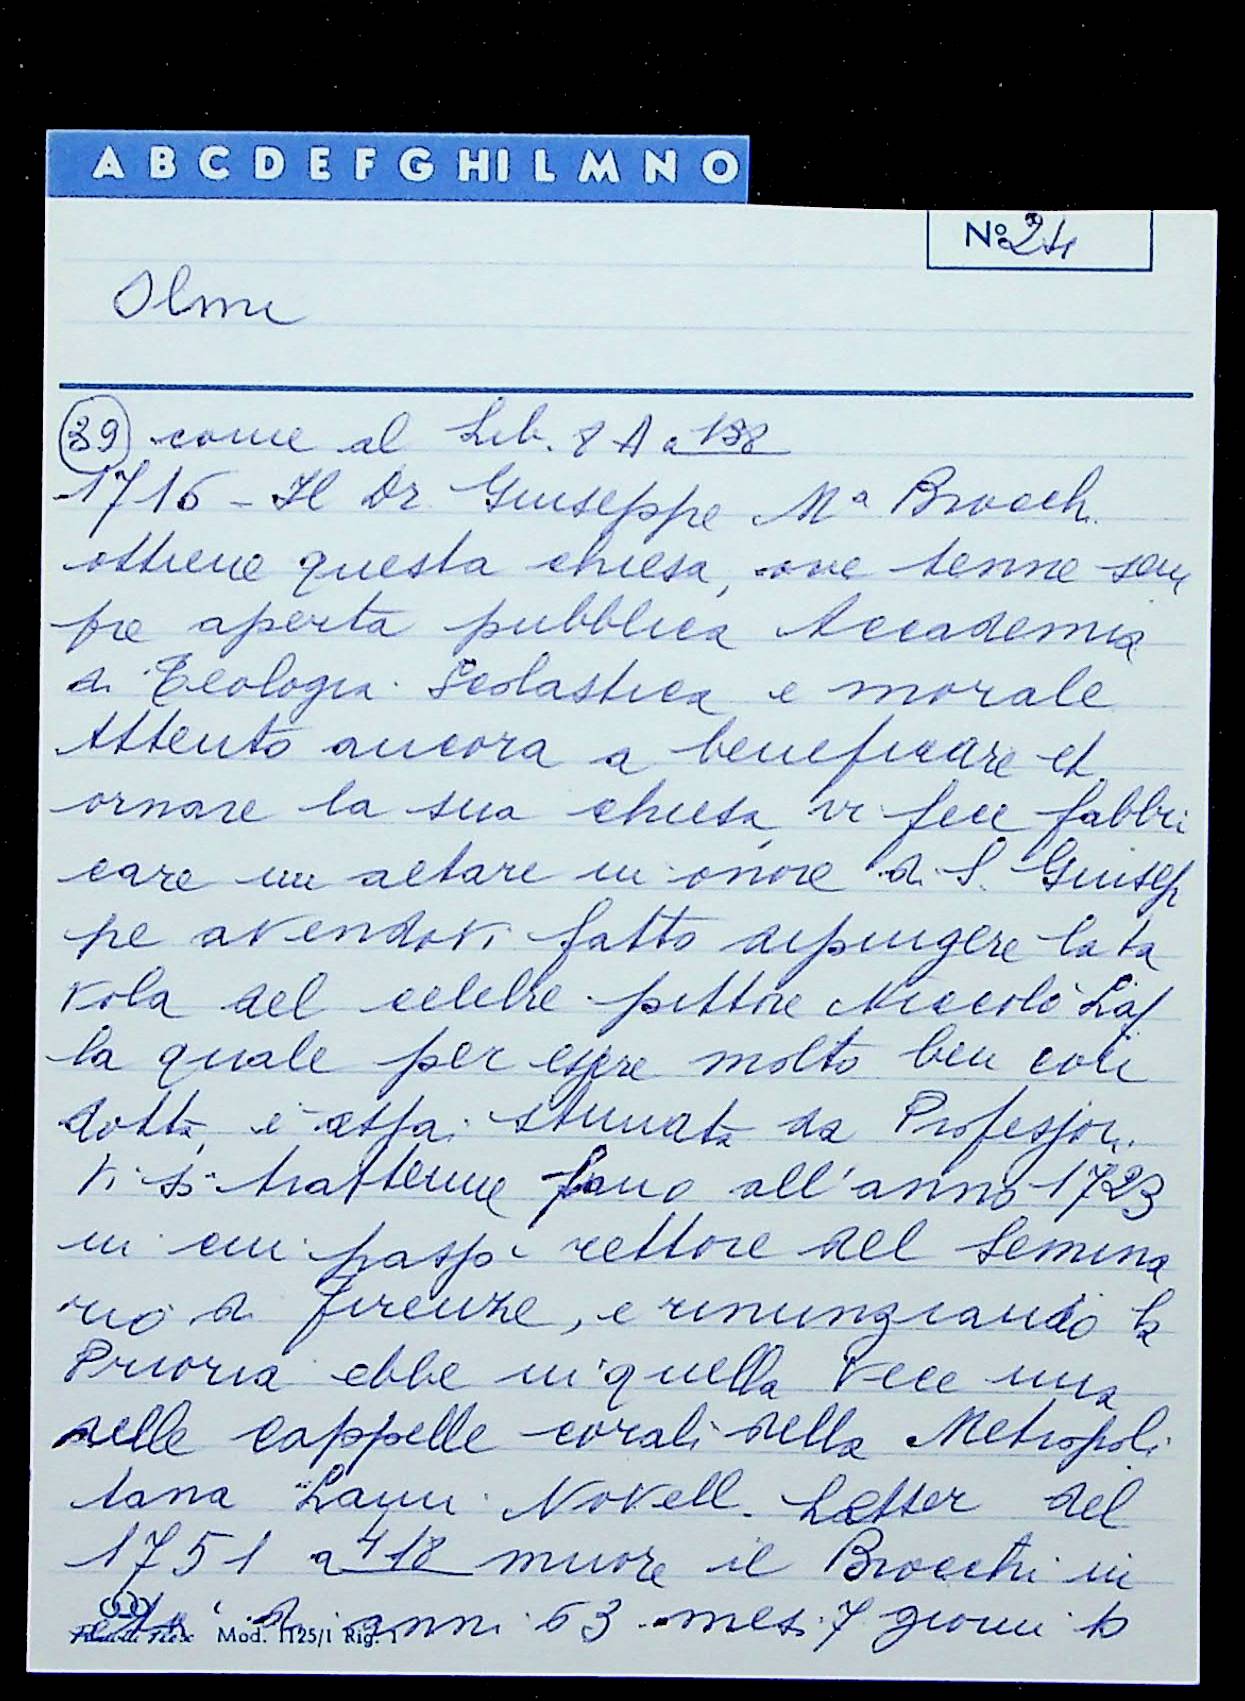 A B C D E F G HI L M N O
No 24
Olmi
39 come al Lib. 8 A a 138
1716 - Il Dr Giuseppe Mª Brocch.
ottiene questa chiesa, ove tenne sem
pre aperta pubblica Accademia
di Teologia Scolastica e morale
Attento ancora a beneficare et
ornare la sua chiesa, vi fece fabbri
care un altare in onore di S. Giusep
pe avendovi fatto dipingere la ta
vola del celebre pittore Niccolò Lapi
la quale per essere molto ben con
dotta, è assai stimata da Professori.
Vi si trattenne fino all'anno 1723
in cui passò rettore del Semina
rio di Firenze, e rinunziando la
Prioria ebbe in quella vece una
delle cappelle corali della Metropoli
tana Lami Novell. Letter del
1751 a 418 muore il Brocchi in
età di anni 63 mesi 7 giorni 10
Mod. 1125/1 Rig. 1